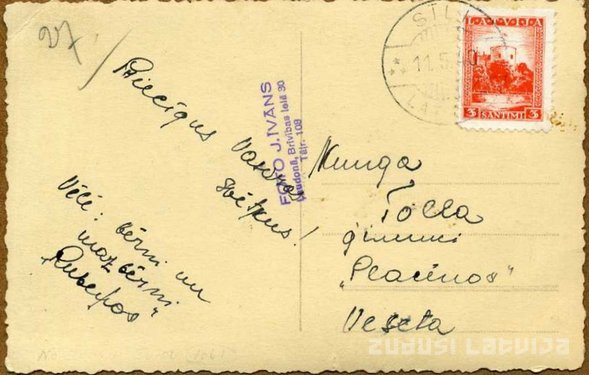 27
Priecīgus Vasaras
svētkus!
Vēlē: bērni un
mazbērni
FOTO J. IVĀNS
Ļaudonā, Brīvības ielā 30
Tālr. 108
LATVIJA
3 SANTIMI 3
11.5.
Kunga
Tolla
ģimenei
"Placēnos"
Vesetā
ZUDUSI LATVIJA